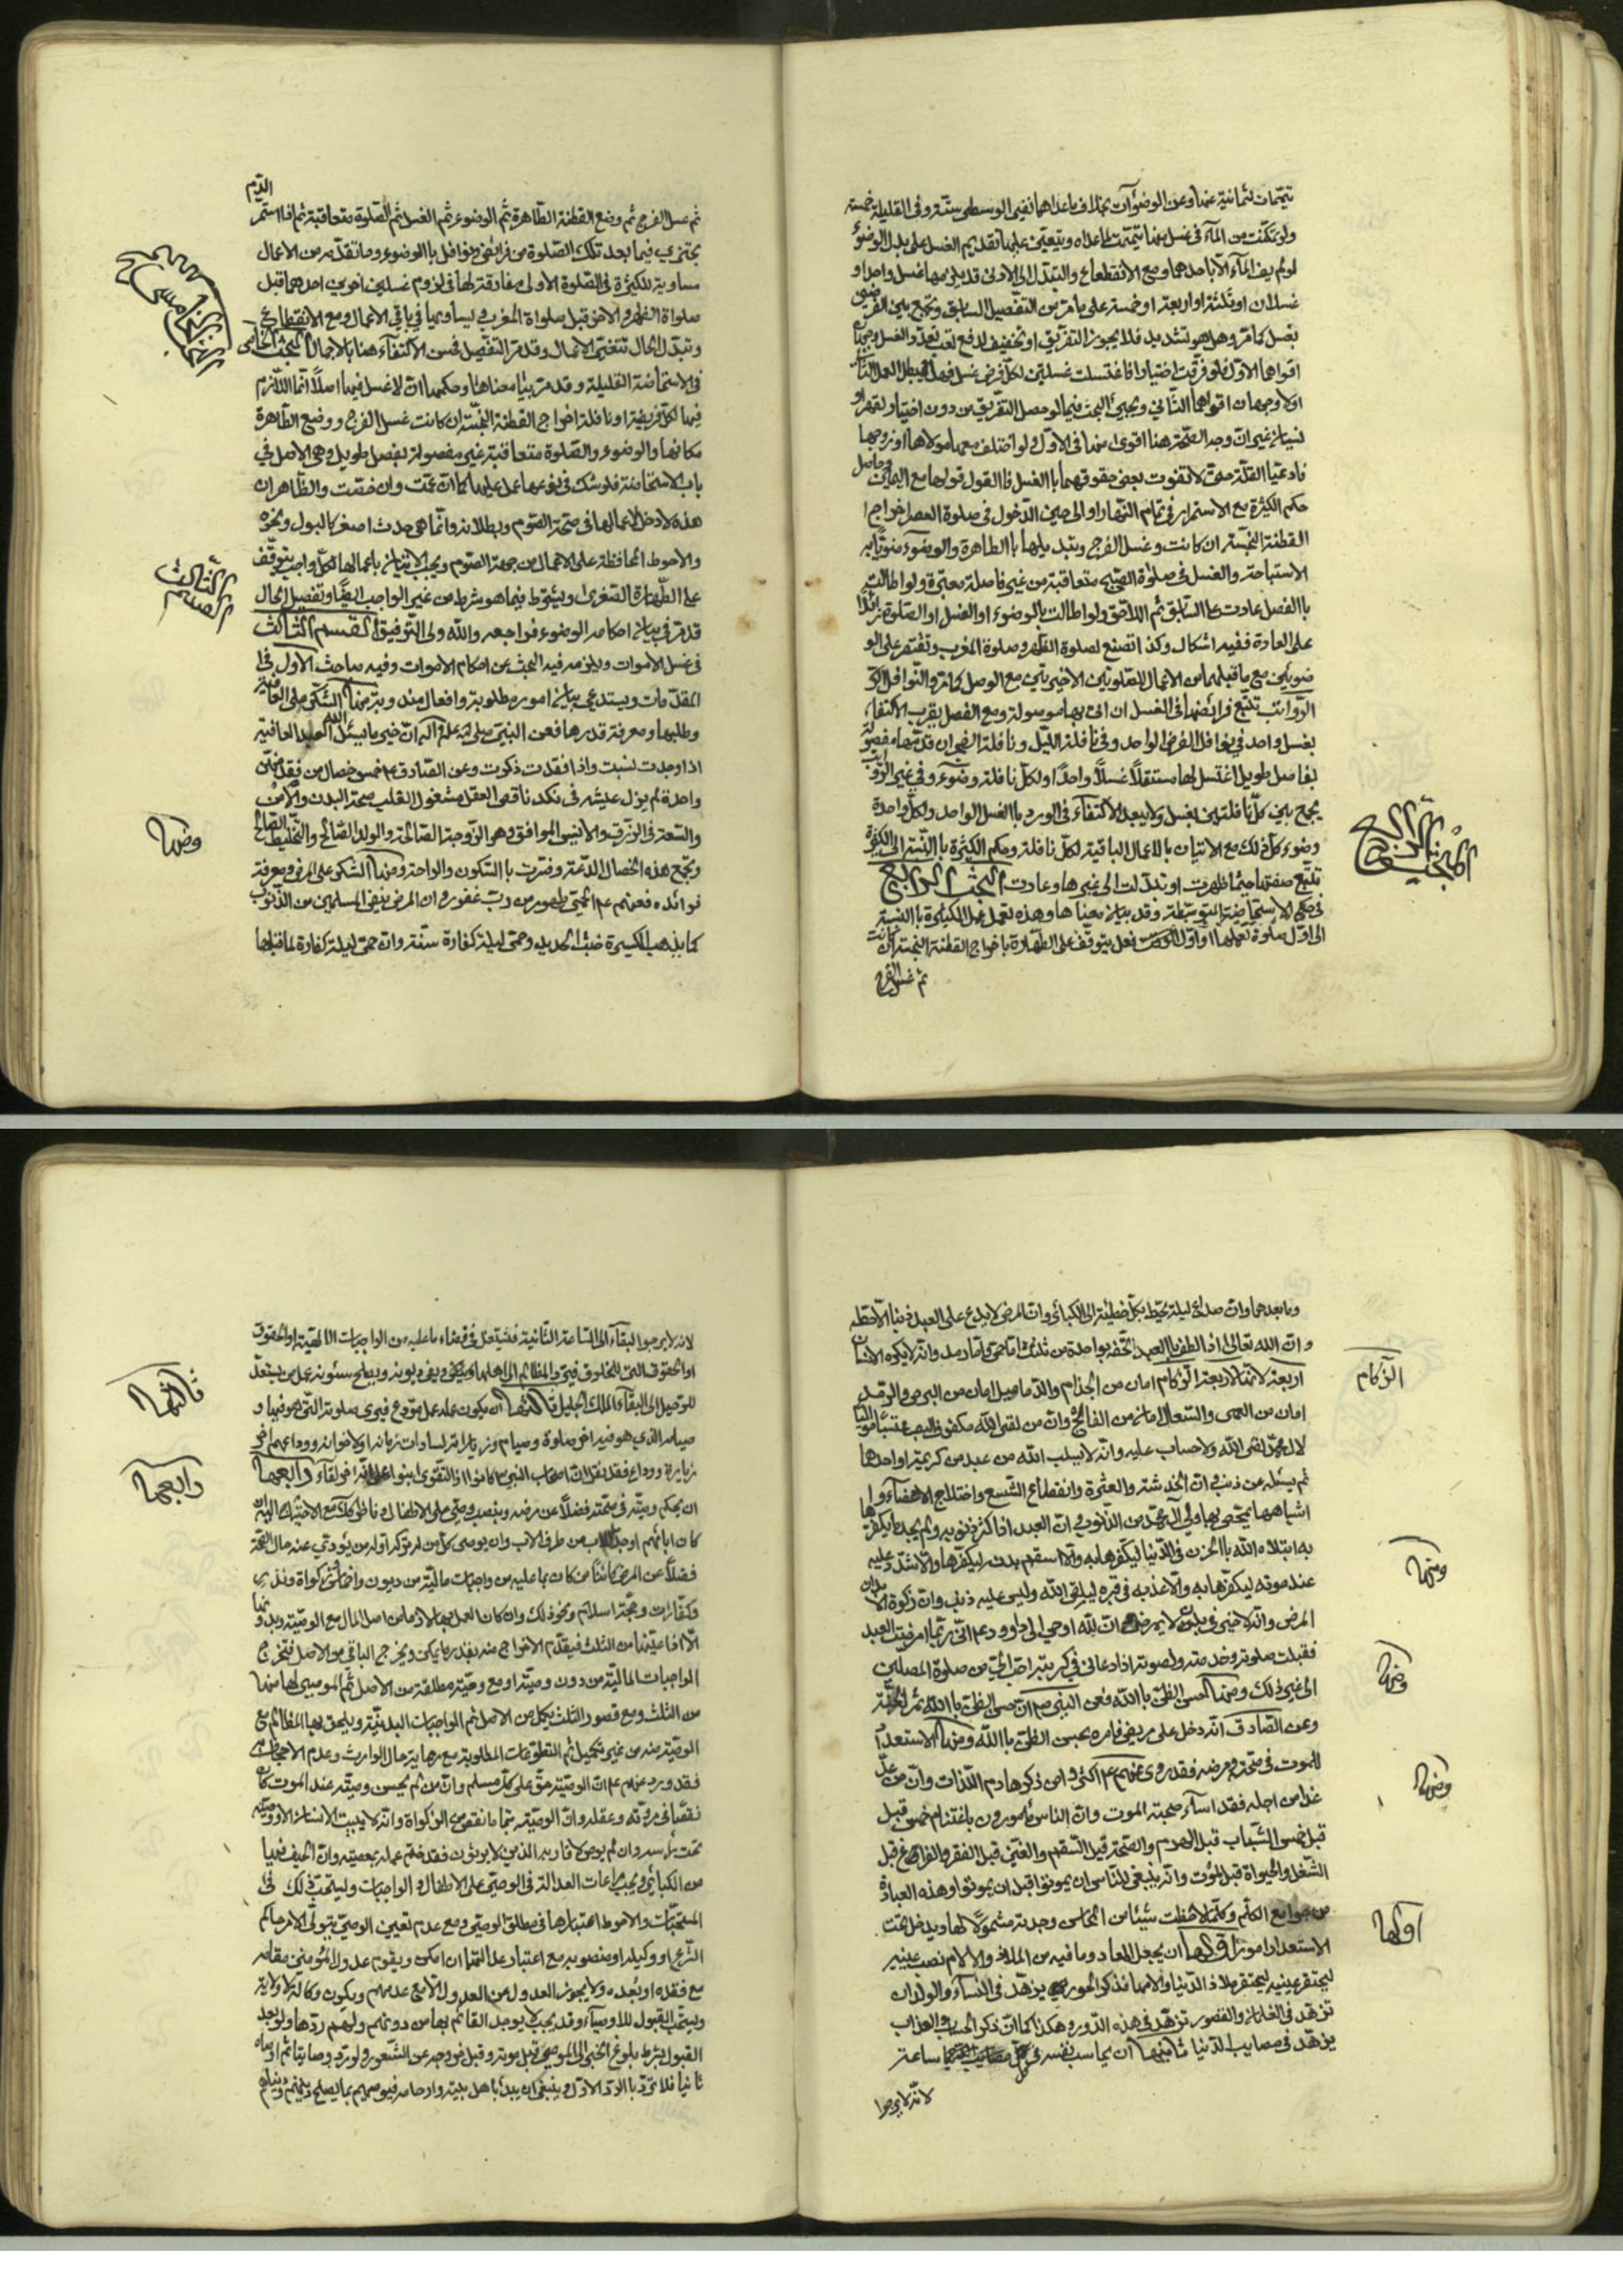 تيمّمات لثمانية عنها وعن الوضوآت بخلاف ما عداها ففي الوسطى ستّة وفي القليلة خمسة
ولو تمكّنت من الماء في غسل منها تيمّمت لما عداه ويتعيّن عليها تقديم الغسل على بدل الوضوء
لو لم يف الماء الّا باحدهما ومع الانقطاع والتبدّل الى الاولى قد يلزمها غسل واحد او
غسلان او ثلثة او اربعة او خمسة على ما مرّ من التفصيل السابق وتجمع بين الفرضين
بغسل كما مرّ وهل هو تشديد فلا يجوز التفريق او تخفيف لدفع تعب تعدّد الغسل وجهان
اقواهما الاوّل فلو فرّقت اختيارا فاغتسلت غسلين لكلّ فرض غسل فهل يبطل العمل الثاني
اولا وجهان اقواهما الثّاني ويجيئ البحث فيما لو حصل التفريق من دون اختيار لقهر او
نسيان غير انّ وجه الصحّة هنا اقوى منها في الاوّل ولو اختلف معها مولاها او زوجها
فادعيا القلّة حتى لا تفوت بعض حقوقهما با الغسل فا القول قولها مع اليمين وحاصل
حكم الكثيرة مع الاستمرار في تمام النهار اوالى حين الدّخول في صلوة العصر اخراج
القطنة النجسة ان كانت وغسل الفرج وتبديلها با الطاهرة والوضوء منويّا به
الاستباحة والغسل في صلوة الصّبح متعاقبة من غير فاصلة معتبرة ولو اطالت
با الفصل عادت على السابق ثم اللاحق ولو اطالت بالوضوء او الغسل او الصّلوة زائدًا
على العادة ففيه اشكال وكذا تصنع لصلوة الظّهر وصلوة المغرب وتقتصر على الو
ضوئين مع ما قبلهما من الاعمال للصّلوتين الاخيرتين مع الوصل كما مرّ والنّوافل الرّ
الرّواتب تتبع فرائضها في الغسل ان اتى بها موصولة ومع الفصل يقرب الاكتفاء
بغسل واحد في نوافل الفرض الواحد وفي نافلة اللّيل ونافلة الصّبح ان قدّمتها مفصولة
بفاصل طويل اغتسل لها مستقلّا غسلًا واحدًا ولكلّ نافلة وضوء وفي غير الرّواتب
يجمع بين كلّ نافلتين بغسل ولا يبعد الاكتفاء في الورد با الغسل الواحد ولكلّ واحدة
وضوء كلّ ذلك مع الاتيان بالاعمال الباقية لكلّ نافلة وحكم الكثيرة با النّسبة الى الكثرة
تتبع صفتها حيثما ظهرت او تبدّلت الى غيرها وعادت البحث الرابع
في حكم الاستحاضة المتوسّطة وقد بيان معناها وهذه تعمل عمل الكثيرة با النسبة
الى اوّل صلوة تعملها او اوّل فعل يتوقّف على الطّهارة باخراج القطنة النجسة ان كانت
ثم غسل الفرج
المبحث الرابع
ثم غسل الفرج ثم وضع القطنة الطّاهرة ثم الوضوء ثم الغسل ثم الصّلوة متعاقبة ثم اذا استمرّ الدّم
تجتزي فيما بعد تلك الصّلوة من فرائض ونوافل با الوضوء وما تقدّمه من الاعمال
مساوية للكثيرة في الصّلوة الاولى مفارقة لها في لزوم غسلين اخرين احدهما قبل
صلواة الظهر والاخر قبل صلواة المغرب ويساويها في باقي الاعمال ومع الانقطاع
وتبدّل الحال تتغيّر الاعمال وقد مرّ التفصيل فحسن الاكتفاء هنا بالاجمال البحث الخامس
في الاستحاضة القليلة وقد مرّ بيان معناها وحكمها ان لا غسل فيها اصلًا انّما اللّازم
فيها لكلّ فريضة او نافلة اخراج القطنة النجسة ان كانت غسل الفرج ووضع الطّاهرة
مكانها والوضوء والصّلوة متعاقبة غير مفصولة بفصل طويل وهي الاصل في
باب الاستحاضة فلو شك في نوعها عمل عليها كما ان عمّت وان خصّت والظّاهر ان
هذه لا دخل لاعمالها في صحّة الصّوم وبطلانه وانّما هي حدث اصغر كالبول ونحوه
والاحوط المحافظة على الاعمال من جهة الصّوم ويجب الاتيان باعمالها لكلّ واجب يتوقّف
على الطّهارة الصّغرى ويشترط فيما هو شرط من غير الواجب ايضًا وتفصيل الحال
قد مرّ في بيان احكام الوضوء فراجعه والله ولي التّوفيق القسم الثّالث
في غسل الاموات ويلزمه فيه البحث عن احكام الاموات وفيه مباحث الاوّل في
المقدّمات ويستدعي بيان امور مطلوبة وافعال مندوبة منها الشّكر على العافية
وطلبها ومعرفة قدرها فعن النبيّ صلى الله عليه واله انّ خير ما يسئل الله العبد العافية
اذا وجدت نسيت واذا فقدت ذكرت وعن الصّادق ع خمس خصال من فقد منهنّ
واحدة لم يزل عيشه في نكد ناقص العقل مشغول القلب صحّة البدن والامن
والسّعة في الرّزق والانيس الموافق وهو الزّوجة الصّالحة والولد الصّالح والخليط الصّالح
وتجمع هذه الخصال الدّعة وفسّرت با السّكون والراحة ومنها الشكر على المرض ومعرفة
فوائده فعنهم ع م الحمّى طهور من ربّ غفور وان المرض ينقي المسلمين من الذّنوب
كما يذهب الكير خبث الحديد وحمّى ليلة كفارة سنة وان حمّى ليلة كفارة لما قبلها
البحث الخامس
القسم الثّالث
ومنها
وما بعدها وانّ صداع ليلة يحيط بكلّ خطيئة الّا الكبائر وانّ المرض لا يدع على العبد ذنبا الّا حطّه
وانّ الله تعالى اذا الطف با العبد اتحفه بواحدة من ثلث امّا حمّى وامّا رمد وانّه لا يكره الانسان
اربعة لانّها لاربعة الزّكام امان من الجذام والدّماميل امان من البرص والرمد
امان من العمى والسّعال امان من الفالج وانّ من لقى الله مكفوف البصر محتسبًا مواليًا
لال محمّد لقى الله ولا حساب عليه وانّه لا يسلب الله من عبد من كريمتيه او احدهما
ثم يسئله عن ذنب وانّ الخدشة والعثرة وانقطاع الشّسع واختلاج الاعضاء و
اشباهها يمحّص بها ولي آل محمّد من الذّنوب وانّ العبد اذا كثر ذنوبه ولم يجد ما يكفّرها
به ابتلاه الله با الحزن في الدّنيا ليكفّرها به والّا اسقم بدنه ليكفّرها والّا شدّد عليه
عند موته ليكفّرها به والّا عذّبه في قبره ليلقى الله وليس عليه ذنب وانّ زكوة الابدان
المرض وانّه لا خير في بدن لا يمرض وانّ الله اوحى الى داوود ع م انّي ربّما امرضت العبد
فقبلت صلوته وخدمته ولصوته اذا دعاني في كربته احبّ اليّ من صلوة المصلّين
الى غير ذلك ومنها حسن الظنّ با الله فعن النبي ص م انّ حسن الظنّ با الله ثمن الجنّة
وعن الصّادق انّه دخل على مريض فامره بحسن الظنّ با الله ومنها الاستعداد
للموت في صحّته ومرضه فقد روي عنهم ع م اكثروا من ذكر هادم اللّذات وانّ من عدّ
غدا من اجله فقد اساء صحبة الموت وانّ الناس مامورون باغتنام خمس قبل
قبل خمس الشّباب قبل الهرم والصّحة قبل السّقم والغنى قبل الفقر والفراغ قبل
الشّغل والحيواة قبل الموت وانّه ينبغي للنّاس ان يموتوا قبل ان يموتوا وهذه العبارة
من جوامع الكلم وكلّما لاحظت شيئا من المحاسن وجدته مشمولًا لها ويدخل تحت
الاستعداد امور اوّلها ان يجعل المعاد وما فيه من الملاذ والالام نصب عينيه
ليحتقر ملاذ الدّنيا والامها فذكر الحور يزهّد في النساء والولدان
تزهّد في الغلمان والقصور تزهّد في هذه الدّور وهكذا كما انّ ذكر الحساب والعذاب
يزهّد في مصايب الدّنيا ثانيها ان يحاسب نفسه في كلّ ساعة
لانّه لا يرجوا
الزّكام
ومنها
ومنها
ومنها
اوّلها
لانه لا يرجوا البقاء الى السّاعة الثّانية فيشتغل في قضاء ما عليه من الواجبات الالهيّة او الحقوق
او الحقوق التي للمخلوق فيردّ المظالم الى اهلها ويفي ديونه ويصلح شئونه عمل من يستعدّ
للرحيل الى البقاء الملك الجليل ثالثها ان يكون عمله عمل مودّع فينوي صلوته التي هو فيها و
صيامه الذي هو فيه اخر صلوة وصيام وزياراته لسادات زمانه او لاخوانه ووداعهم اخر
زيارة ووداع فقد نقل انّ اصحاب النبي ص كانوا اذا التقوا بنوا على انّه اخر لقاء رابعها
ان يحكم وصيّته في صحّته فضلًا عن مرضه وينصب وصيّ على الاطفال وناظر كذلك مع الاحتياج اليه ان
كان ابائهم او جدّ لاب من طرف الاب وان يوصي كلّ من له تركة او له من يؤدّي عنه حال الصّحة
فضلًا عن المرض كائنًا من كان بما عليه من واجبات ماليّة من ديون واخماس وزكواة ونذر
وكفّارات وحجّة اسلام ونحو ذلك وان كان العمل بها لازما من اصل المال مع الوصيّة وبدونها
الّا اذا عيّنها من الثلث فيقدّم الاخراج منه بقدر ما يمكن ويخرج الباقي من الاصل فتخرج
الواجبات الماليّة من دون وصيّة او مع وصيّة مطلقة من الاصل ثم الموصى لها منها
من الثلث ومع قصور الثلث يكمل من الاصل ثم الواجبات البدنيّة ويلحق بها المظالم مع
الوصيّة منه من غير تكميل ثم التطوّعات المطلوبة مع رعاية حال الوارث وعدم الاجحاف
فقد ورد عنهم ع م انّ الوصيّة حقّ على كلّ مسلم وانّ من لم يحسن وصيّته عند الموت كان
نقصًا في مروّته وعقله وانّ الوصيّة تتمام ما نقص من الزكواة وانّه لا يبيت الانسان الّا ووصيّته
تحت راسه وان لم يوص لاقاربه الذين لا يرثون فقد ختم عمله بمعصيته وانّ الحيف فيها
من الكبائر ويجب مراعات العدالة في الوصيّ على الاطفال والواجبات ويستحبّ ذلك في
المستحبّات والاحوط اعتبارها في مطلق الوصيّ ومع عدم تعيين الوصيّ يتولّى الامر حاكم
الشّرع او وكيله او منصوبه مع اعتبار عدالتهما ان امكن ويقوم عدول المؤمنين مقامه
مع فقده او بعده ولا يجوز العدول من العدول الّا مع عدمهم ويكون وكالة لا ولاية
ويستحبّ القبول للاوصياء وقد يجب لا يوجد القائم بها من دونهم ولهم ردّها ولو بعد
القبول بشرط بلوغ الخبر الى الموصي قبل موته وقبل خروجه عن الشّعور ولو ردّ وصايتنا ثم اوصاه
ثانيا فلا تردّ با الردّ الاوّل وينبغي ان يبدأ باهل بيته وارحامه فيوصيهم بما يصلح دينهم ودنياهم
ثالثها
رابعها